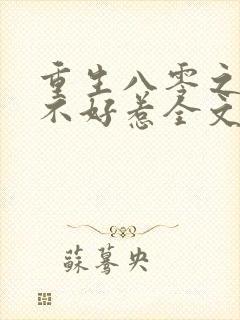 重生八零之
不好惹全文
蘇驀央